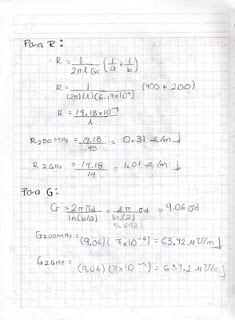 Para R:
R = 1/(2πδσc) (1/a + 1/b)
R = 1/((2π)(δ)(6.17×10⁷)) (900 + 200)
R = 14.18×10⁻⁶/δ
R200MHz = 14.18/ = 0.31 Ω/m
R2GHz = 14.18/14 = 1.01 Ω/m
Para G:
G = 2πσd/ln(b/a) = 2π/ln(2) σd = 9.06 σd
0.6931
G200MHz = (9.06)(7×10⁻⁶) = 63.42 μ℧/m
G2GHz = (9.06)(7×10⁻⁵) = 634.2 μ℧/m